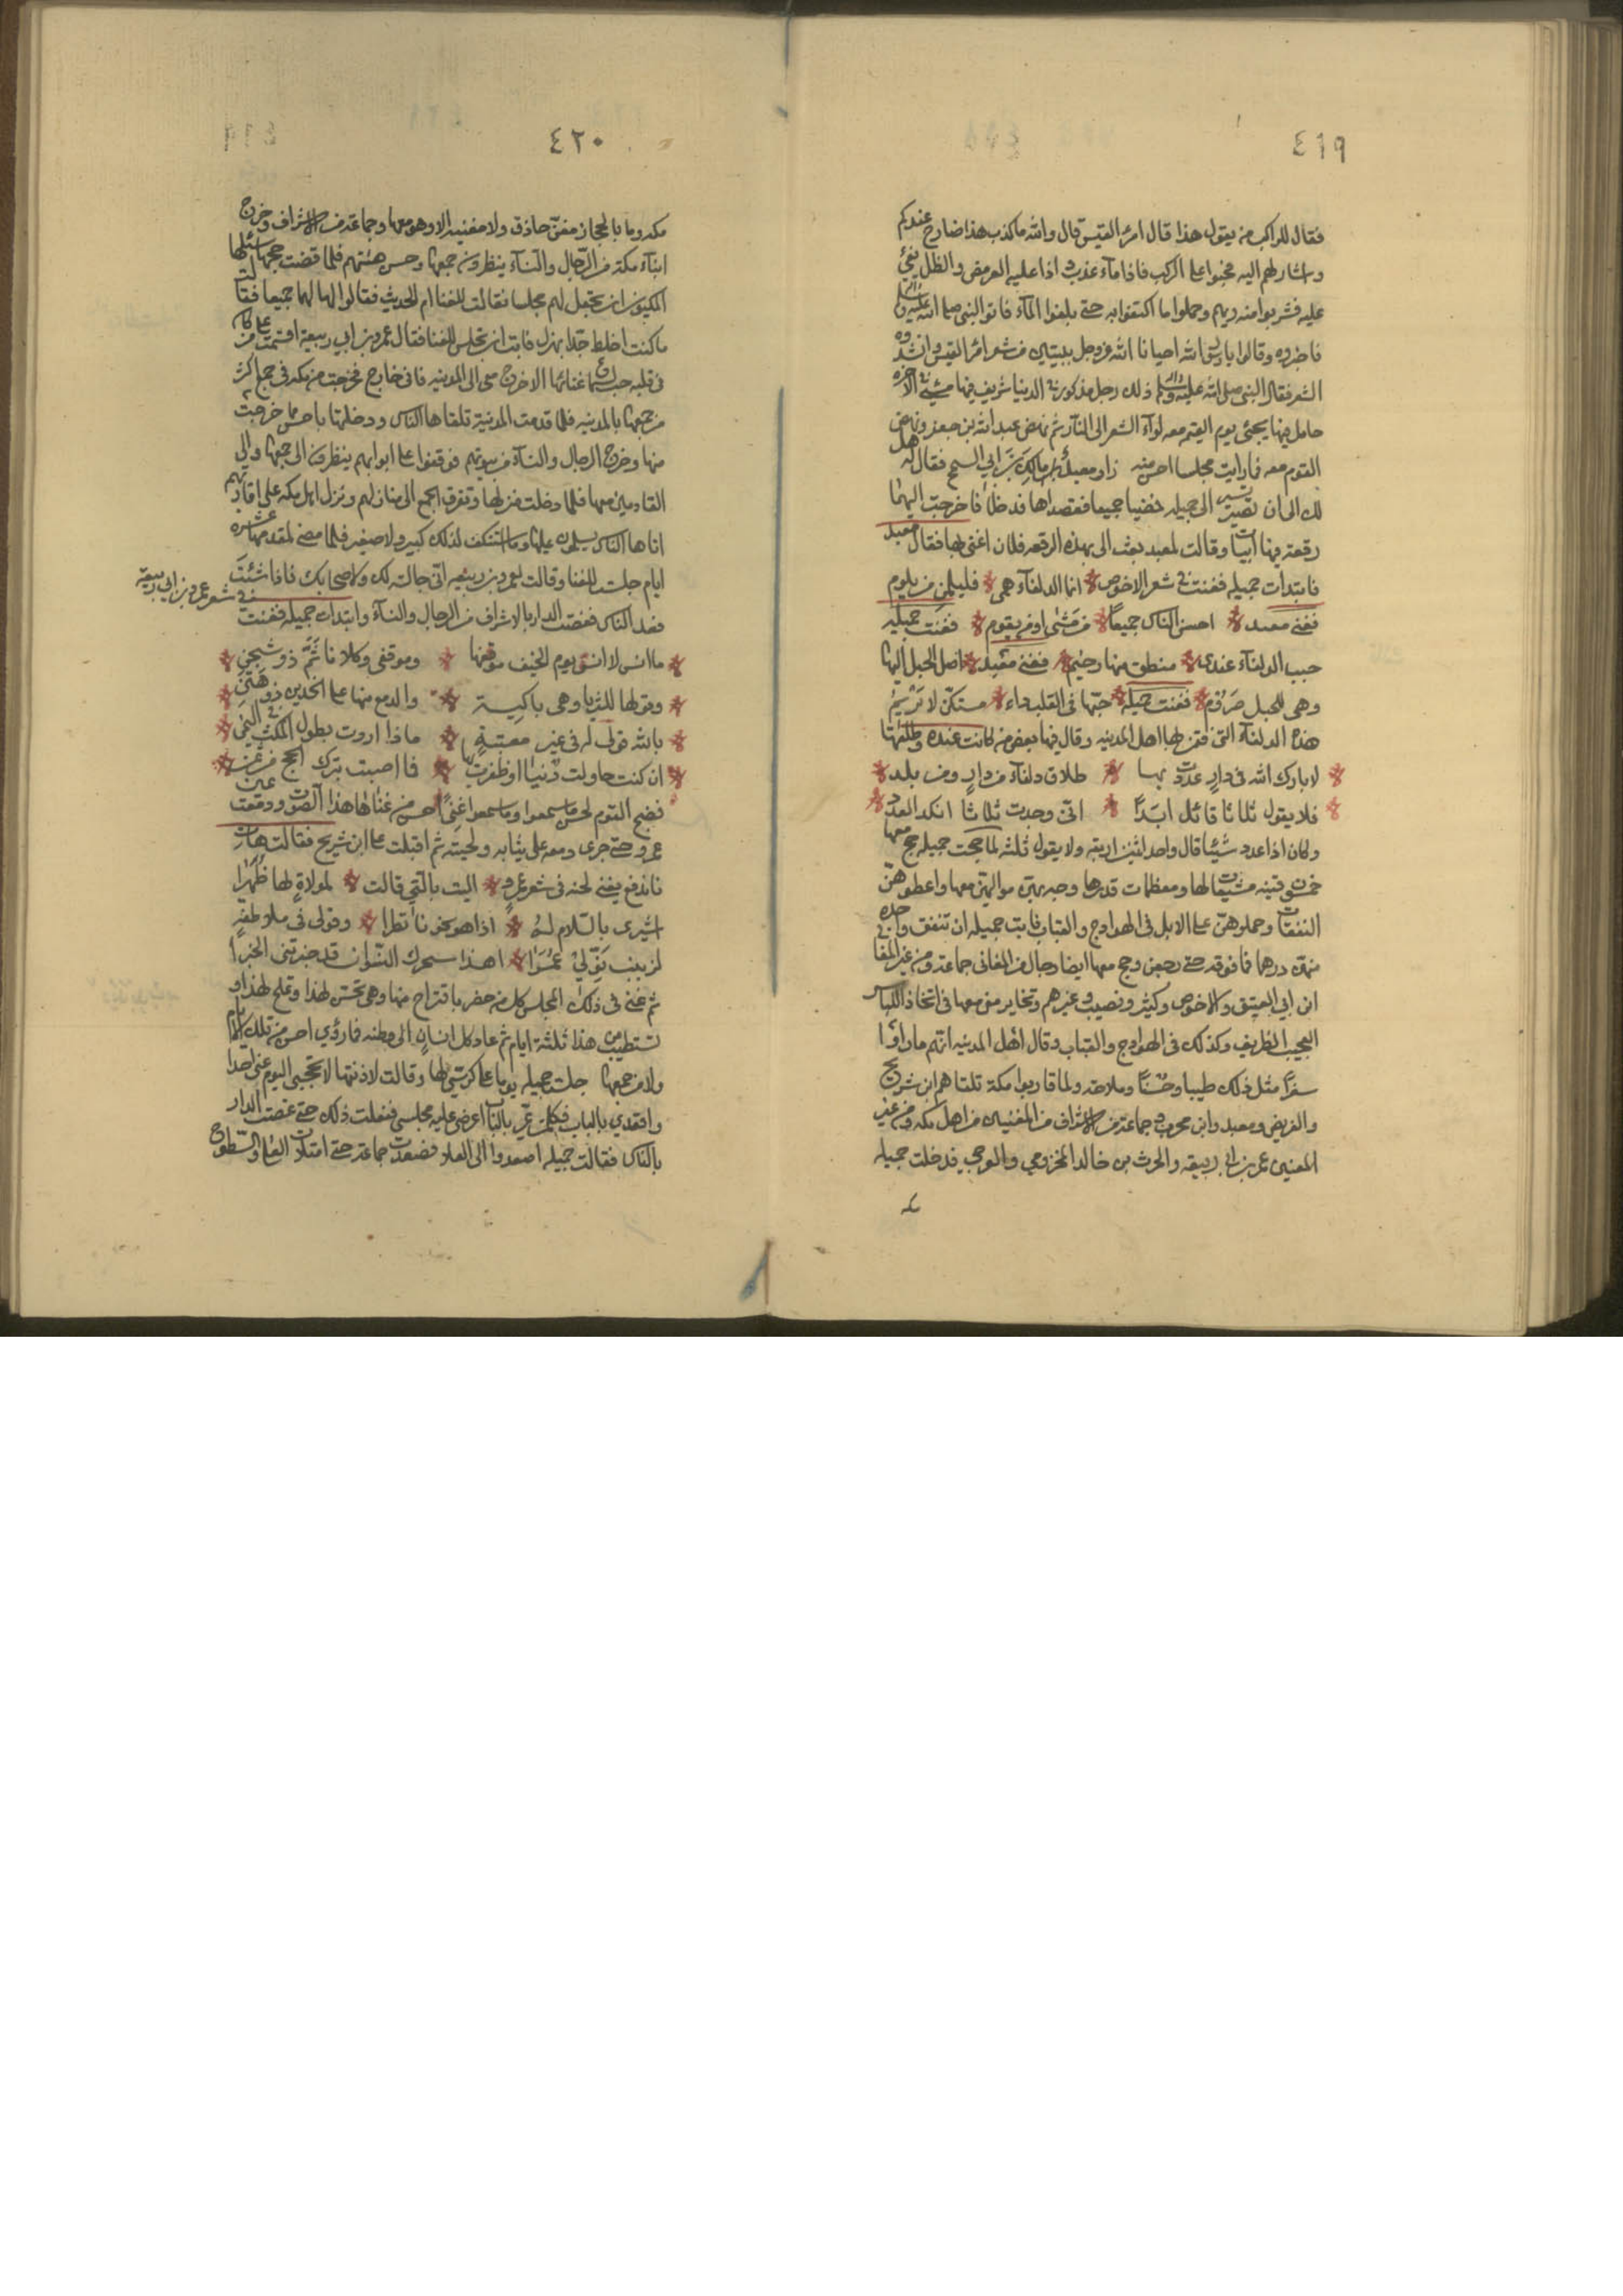 ٤١٩
فقال للراكب من يقول هذا قال امرؤ القيس قال والله ما كذب هذا ضارج عندكم
واشار لهم اليه فحبوا على الركب فاذا ماء عذب و اذا عليه العرمض والظل يفئ
عليه فشربوا منه ريهم وحملوا ما اكتفوا به حتى بلغوا الماء فاتوا النبي صلى الله عليه وسلم
فاخبروه وقالوا يا رسول الله احيانا الله عز وجل ببيتين من شعر امرؤ القيس وانشدوه
الشعر فقال النبي صلى الله عليه وسلم ذلك رجل مذكور في الدنيا شريف فيها منسي في الاخرة
خامل فيها يجئ يوم القيمة معه لواء الشعر الى النار ثم نهض عبد الله بن جعفر ونهض
القوم معه فما رايت مجلسا احسن منه زار معبد مالك بن ابي السمح فقال له هل
لك الى ان تصير الى جميله فمضيا جميعا فقصداها فدخلا فاخرجت اليهما
رقعة فيها ابيات وقالت لمعبد بعث الى بهذه الرقعه فلان اغنى بها فقال معبد
فابتدأت جميله فغنت في شعر الاخوص * انما الدلفاء همى * فليلمن من يلوم
فغنى معبد * احسن الناس جميعًا * من مشى او من يقوم * فغنت جميله
حبب الدلفاء عندى * منطق منها رخيم * فغنى معبد * اصل الحبل اليها
وهى للحبل صروم * فغنت جميله * حبّها في القلب داء * مستكن لا يريم
هذه الدلفاء التى فتن بها اهل المدينه وقال فيها بعض من كانت عنده وطلقها
* لا بارك الله فى دارٍ عددت بها * طلاق دلفاء من دارٍ ومن بلد *
* فلا يقول ثلاثا قائل ابدًا * انى وجدت ثلاثا انكد العدد *
وكان اذا عدد شيئا قال واحد اثنين اربعه ولا يقول ثلثه لما حجت جميله حج معها
خمسون قينه مشيعات لها ومعظمات قدرها وجه بهن مواليهن معها واعطوهن
النفقات وحملوهن على الابل فى الهوادج والقباب فابت جميله ان تنفق واحدة
منهن درهما فما فوقه حتى رجعن وحج معها ايضا رجال من المغانى جماعة ومن غير المغانى
ابن ابي العتيق والاخوص وكثير ونصيب وغيرهم وتخاير من معها فى اتخاذ اللباس
العجيب الظريف وكذلك فى الهوادج والقباب وقال اهل المدينه انهم ما راوا
سفرًا مثل ذلك طيبا وحسنًا وملاحة ولما قاربوا مكة تلقاهم ابن شريح
والغريض ومعبد وابن محرز و جماعة من الاشراف من المغنين من اهل مكه ومن غير
المغنين عمر بن ابي ربيعه والحرث بن خالد المخزومى والعرجى فدخلت جميله
مكه
٤٢٠
مكه وما بالحجاز مغن حاذق ولا مغنيه الا وهو معها وجماعة من الاشراف وخرج
ابناء مكة من الرجال والنساء ينظرون جمعها وحسن هيئتهم فلما قضت حجها سئلها
المكيون ان تجعل لهم مجلسا فقالت للغنا ام للحديث فقالوا لها لهما جميعا فقالت
ما كنت اخلط جدا بهزل فابت ان تجلس للغنا فقال عمرو بن ابي ربيعة اقسمت على من كان
فى قلبه حب لسماع غنائها الا خرج معى الى المدينه فانى خارج فخرجت من مكه فى جمع اكثر
من جمعها بالمدينه فلما قدمت المدنية تلقاها الناس ودخلتها باحسن مما خرجت
منها وخرج الرجال والنساء من بيوتهم فوقفوا على ابوابهم ينظرون الى جمعها والى
القادمين معها فلما دخلت منزلها وتفرق الجمع الى منازلهم ونزل اهل مكه على اقاربهم
اتاها الناس يسلمون عليها وما استنكف لذلك كبير ولا صغير فلما مضى لمقدمها عشرة
ايام جلست للغنا وقالت لعمر وبن ربيعه انى جالسة لك ولاصحابك فاذا شئت
فعد الناس فغصت الدار بالاشراف من الرجال والنساء وابتدات جميله فغنت في شعر عمرو بن ابي ربيعة
* ما انس لا انس يوم الخيف موقفها * وموقفى وكلانا ثمّ ذو شجن *
* وقولها للثريا وهى باكيةٌ * والدمع منها على الخدين ذو سنن *
* بالله قولى له فى غير معتبةٍ * ماذا اردت بطول المكث في اليمن *
* ان كنت حاولت دنيا او ظفرت بها * فما اصبت بترك الحج من ثمن *
فضج القوم لحسن ما سمعوا وما سمعوا غنى احسن من غنائها هذا الصوت ودمعت عين
عمرو حتى جرى دمعه على ثيابه ولحيته ثم اقبلت على ابن شريح فقالت هات
فاندفع يغنى لحنه فى شعر عمرٍو * اليست بالتى قالت * لمولاةٍ لها ظهرًا
اشيرى بالسلام لهُ * اذا هو نحونا نظرا * وقولى فى ملاطفةٍ
لزينب نوّلي عمرا * اهذا سحرك النسوان قد خبرتنى الخبرا
ثم غنى فى ذلك المجلس كل من حضر باقتراح منها وهى تحسن لهذا وتملح لهذا و
تستطيب من هذا ثلثة ايام ثم عاد كل انسانٍ الى وطنه فما رؤي احسن من تلك الايام
ولا من جمعها جلست جميله يوما على كرسيّ لها وقالت لاذنتها لا تحجبى اليوم عنى احدا
واقعدي بالباب فكل من يمّر بالباب اعرضى عليه مجلسى ففعلت ذلك حتى غصت الدار
بالناس فقالت جميله اصعدوا الى العلا فصعدت جماعة حتى امتلات العلا والسطوح